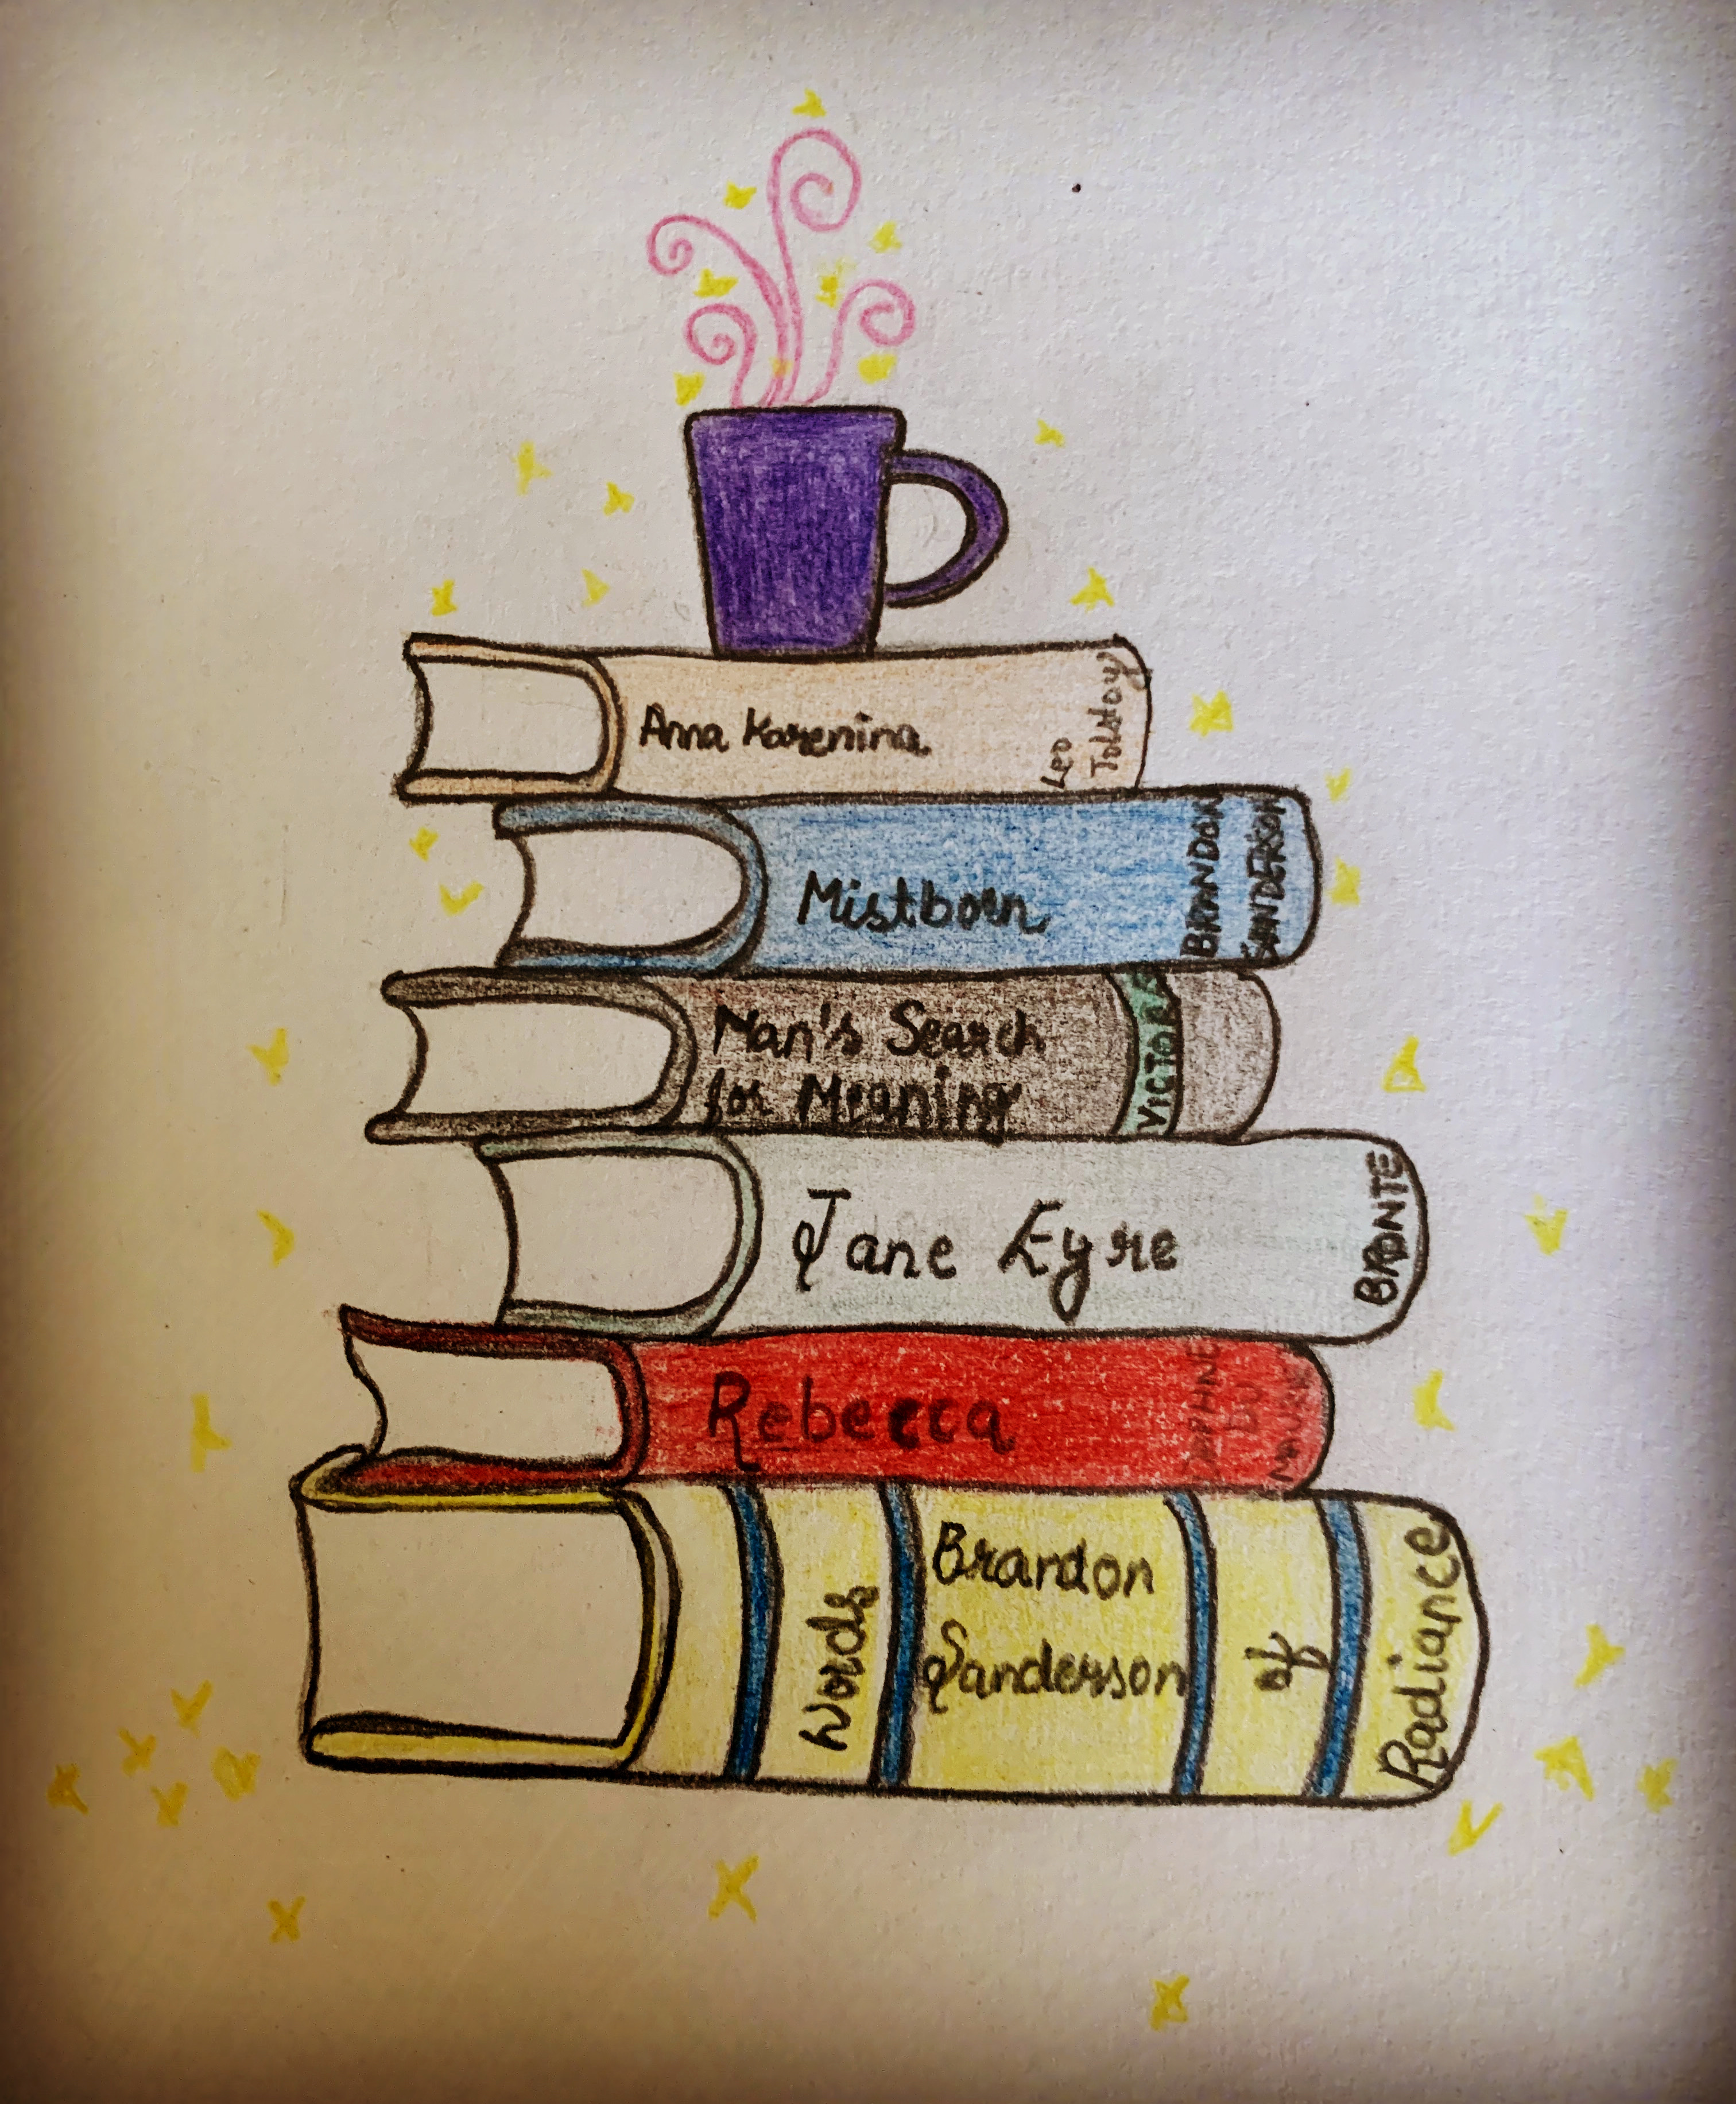 Anna Karenina
Leo
Tolstoy
Mistborn
BRANDON
SANDERSON
Man's Search
for Meaning
VICTOR
Jane Eyre
BRONTE
Rebecca
DAPHNE
DU
Words
Brandon
Sanderson
of
Radiance